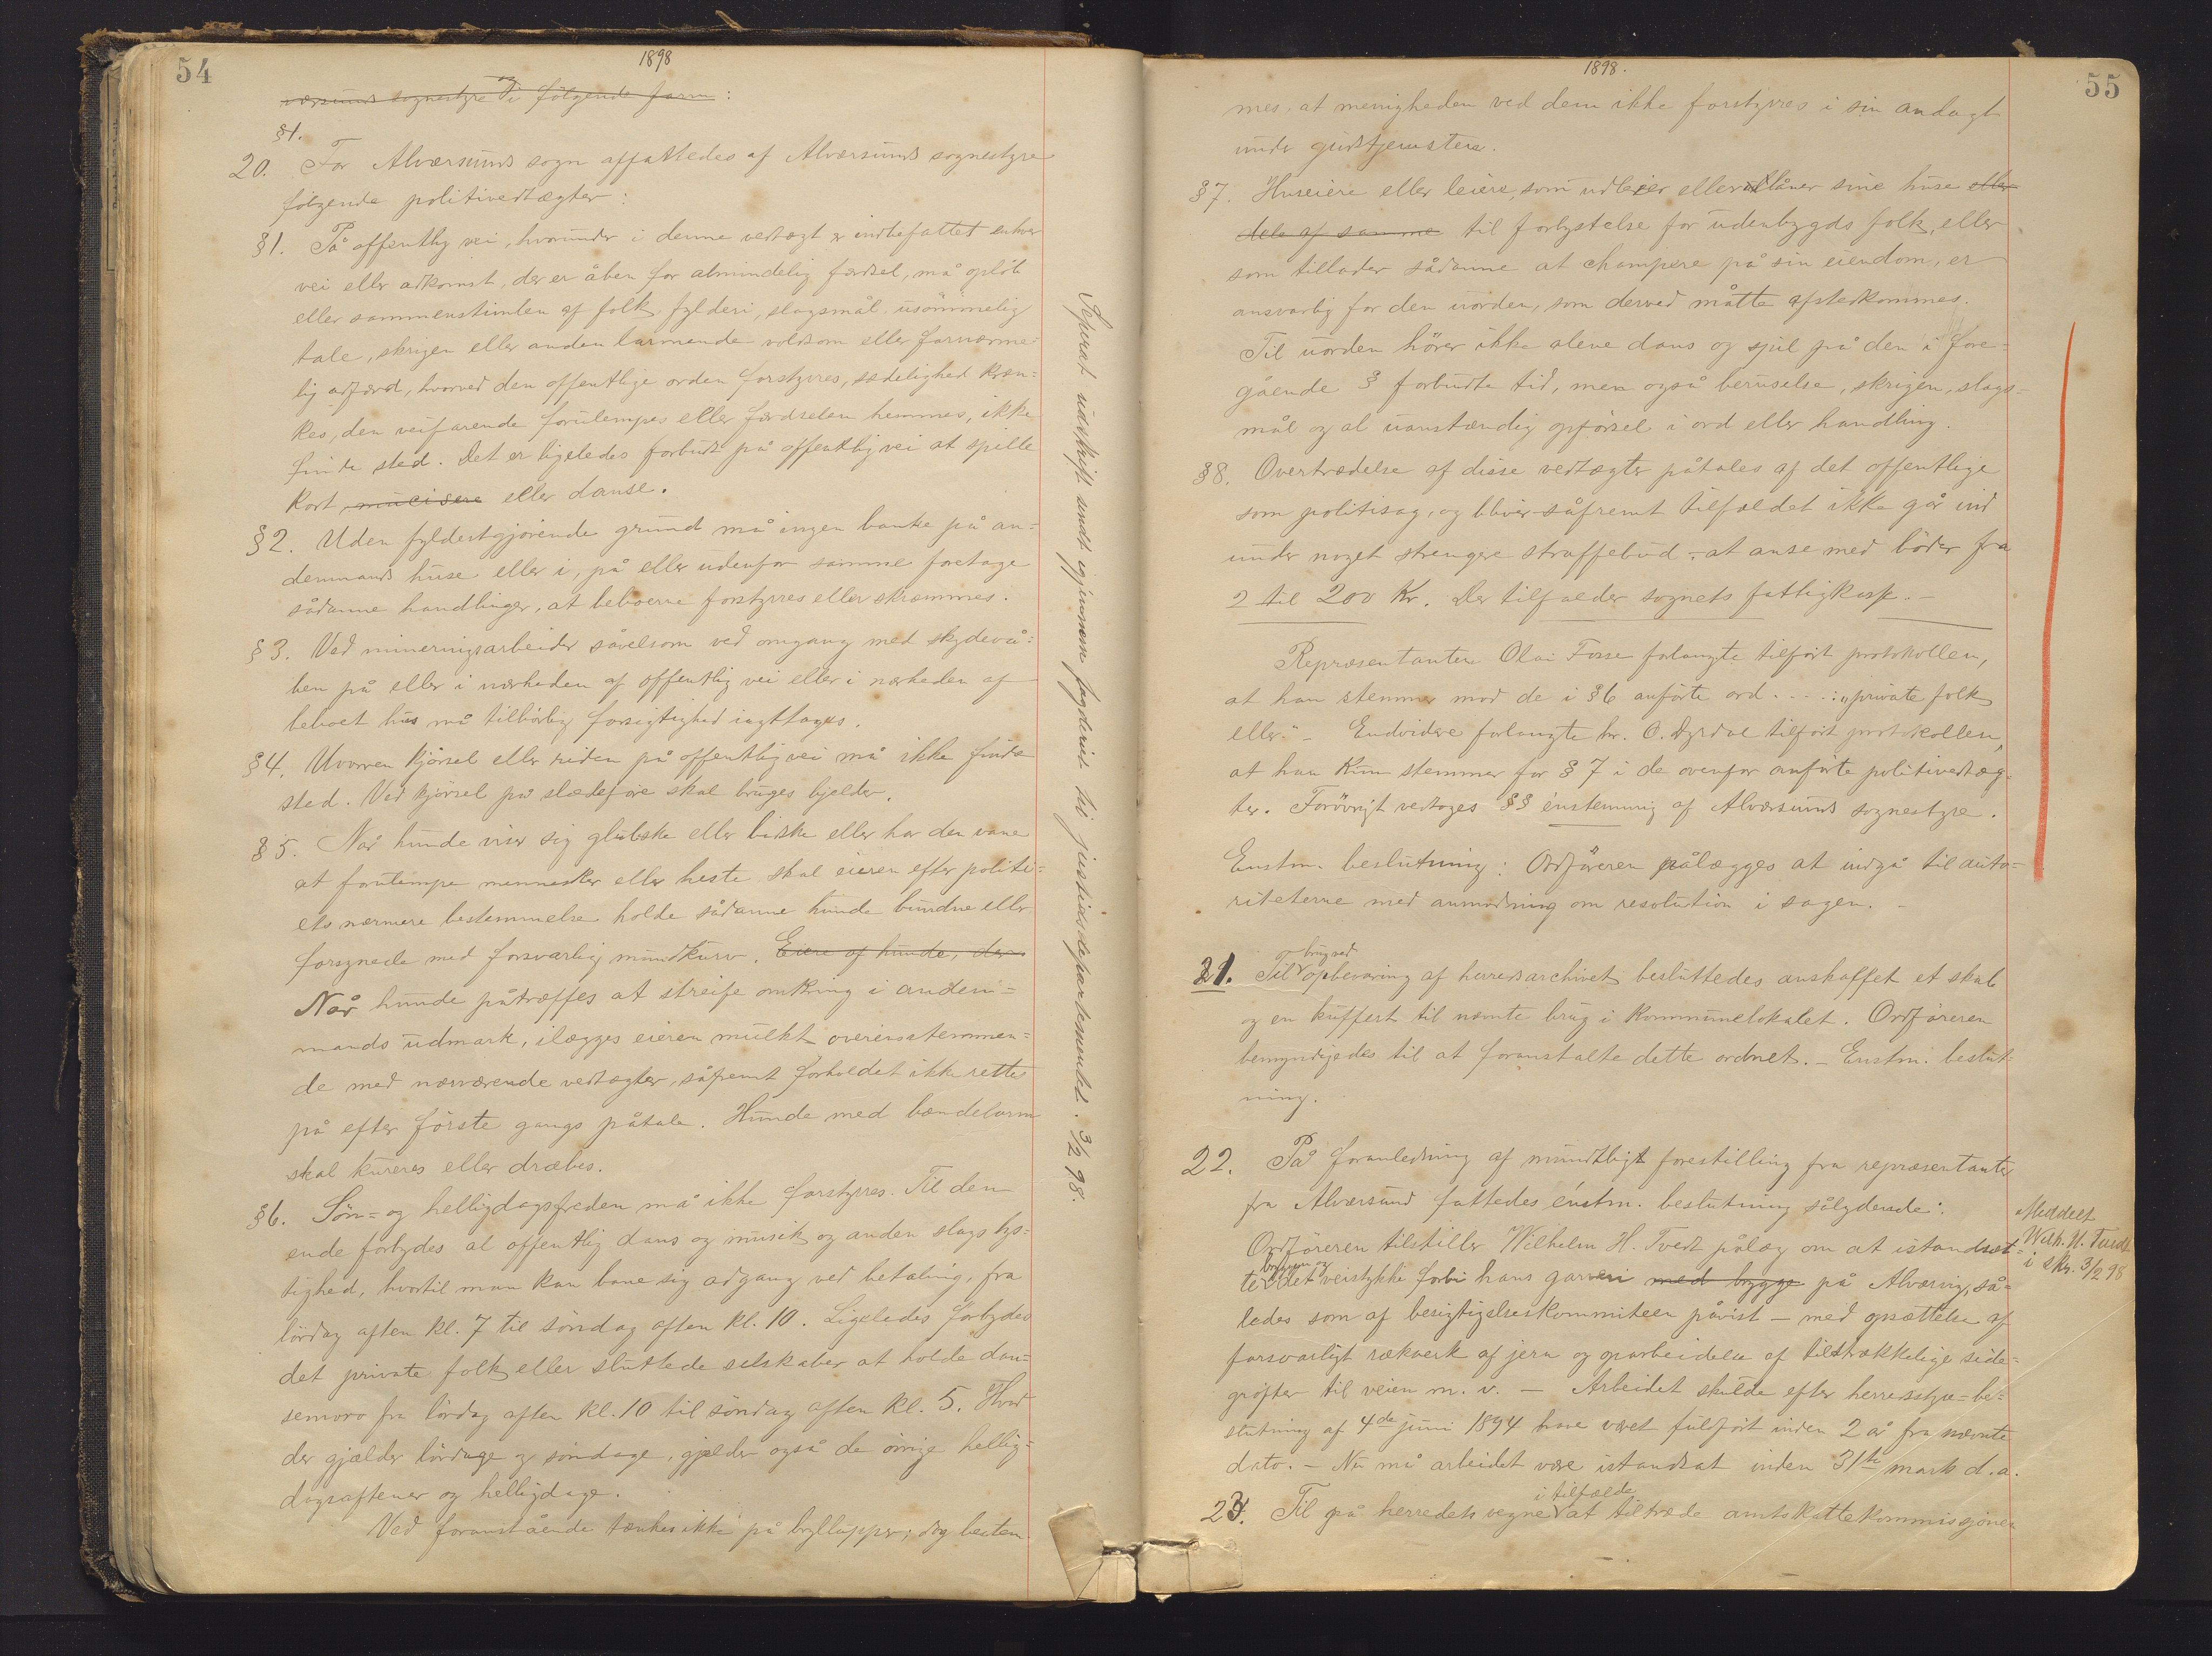 54
1898
værsunds sognestyre og i følgende form:
§1.
20. For Alværsunds sogn affattedes af Alværsunds sognestyre
følgende politivedtægter:
§1. På offentlig vei, hvorunder i denne vedtægt er indbefattet enhver
vei eller adkomst, der er åben for almindelig færdsel, må opløb
eller sammenstimlen af folk, fylderi, slagsmål, usømmelig
tale, skrigen eller anden larmende voldsom eller fornærme-
lig adfærd, hvorved den offentlige orden forstyrres, sædelighed kræn=
kes, den veifarende forulempes eller færdselen hemmes, ikke
finde sted. Det er ligeledes forbudt på offentlig vei at spille
kort, mucisere eller danse.
§2. Uden fyldestgjørende grund må ingen banke på an=
denmands huse eller i, på eller udenfor samme foretage
sådanne handlinger, at beboerne forstyrres eller skræmmes.
§3. Ved mineringsarbeider såvelsom ved omgang med skydevå=
ben på eller i nærheden af offentlig vei eller i nærheden af
beboet hus må tilbørlig forsigtighed iagttages.
§4. Uvorren kjørsel eller riden på offentlig vei må ikke finde
sted. Ved kjørsel på slædeføre skal bruges bjelder.
§5. Når hunde viser sig glubske eller bidske eller har den vane
at forulempe mennesker eller heste skal eieren efter politi=
ets nærmere bestemmelse holde sådanne hunde bundne eller
forsynede med forsvarlig mundkurv. Eiere af hunde, der
Når hunde påtræffes at streife omkring i anden=
mands udmark, ilægges eieren mulkt overensstemmen=
de med nærværende vedtægter, såfremt forholdet ikke rettes
på efter første gangs påtale. Hunde med bændelorm
skal kureres eller dræbes.
§6. Søn= og helligdagsfreden må ikke forstyrres. Til den
ende forbydes al offentlig dans og musik og anden slags lys=
tighed, hvortil man kan bane sig adgang ved betaling, fra
lørdag aften kl. 7 til søndag aften kl. 10. Ligeledes forbydes
det private folk eller sluttede selskaber at holde dan=
semoro fra lørdag aften kl. 10 til søndag aften kl. 5. Hvad
der gjælder lørdage og søndage, gjælder også de øvrige hellig=
dagsaftener og helligdage.
Ved foranstående tænkes ikke på brylluper; dog bestem
Separat udskrift sendt igjennem fogderiet til justisdepartementet. 3/2 98.
1898.
55
mes, at menigheden ved dem ikke forstyrres i sin andagt
under gudstjenesten.
§7. Huseiere eller leiere, som udleier eller udlåner sine huse eller
dele af samme til forlystelse for udenbygds folk, eller
som tillader sådanne at champere på sin eiendom, er
ansvarlig for den uorden, som derved måtte afstedkommes.
Til uorden hører ikke alene dans og spil på den i fore=
gående § forbudte tid, men også beruselse, skrigen, slags=
mål og al uanstændig opførsel i ord eller handling.
§8. Overtrædelse af disse vedtægter påtales af det offentlige
som politisag, og bliver såfremt tilfældet ikke går ind
under noget strengere straffebud - at anse med bøder fra
2 til 200 Kr. Der tilfalder sognets fattigkasse. -
Repræsentanten Olai Fosse forlangte tilført protokollen,
at han stemmer mod de i §6 anførte ord . . . . : "private folk
eller" - Endvidere forlangte hr. O. Dyrdal tilført protokollen,
at han kun stemmer for § 7 i de ovenfor anførte politivedtæg=
ter. Forøvrigt vedtoges §§ énstemmig af Alværsunds sognestyre.
Enstm. beslutning: Ordføreren pålægges at indgå til auto=
riteterne med anmodning om resolution i sagen. -
21. Til opbevaring af herredsarchivet besluttedes anskaffet et skab
og en kuffert til nævnte brug i kommunelokalet. Ordføreren
bemyndigedes til at foranstalte dette ordnet. - Enstm. beslut
ning.
22. På foranledning af mundtligt forestilling fra repræsentanter
fra Alværsund fattedes énstm. beslutning sålydende:
Ordføreren tilstiller Wilhelm H. Tvedt pålæg om at istandsæt=
te det bryggen og veistykke forbi hans garveri med brygge på Alværvig, så=
ledes som af besigtigelseskommiteen påvist - med opsættelse af
forsvarligt rækværk af jern og oparbeidelse af tilstrækkelige side=
grøfter til veien m. v. - Arbeidet skulde efter herredstyre=be=
slutning af 4de juni 1894 have været fuldført inden 2 år fra nævnte
dato. - Nu må arbeidet være istandsat inden 31te marts d. a.
Meddelt
Wilh. H. Tvedt
i skr. 3/2 98
23. Til på herredets vegne i tilfælde at tiltræde amtskattekommisjonen